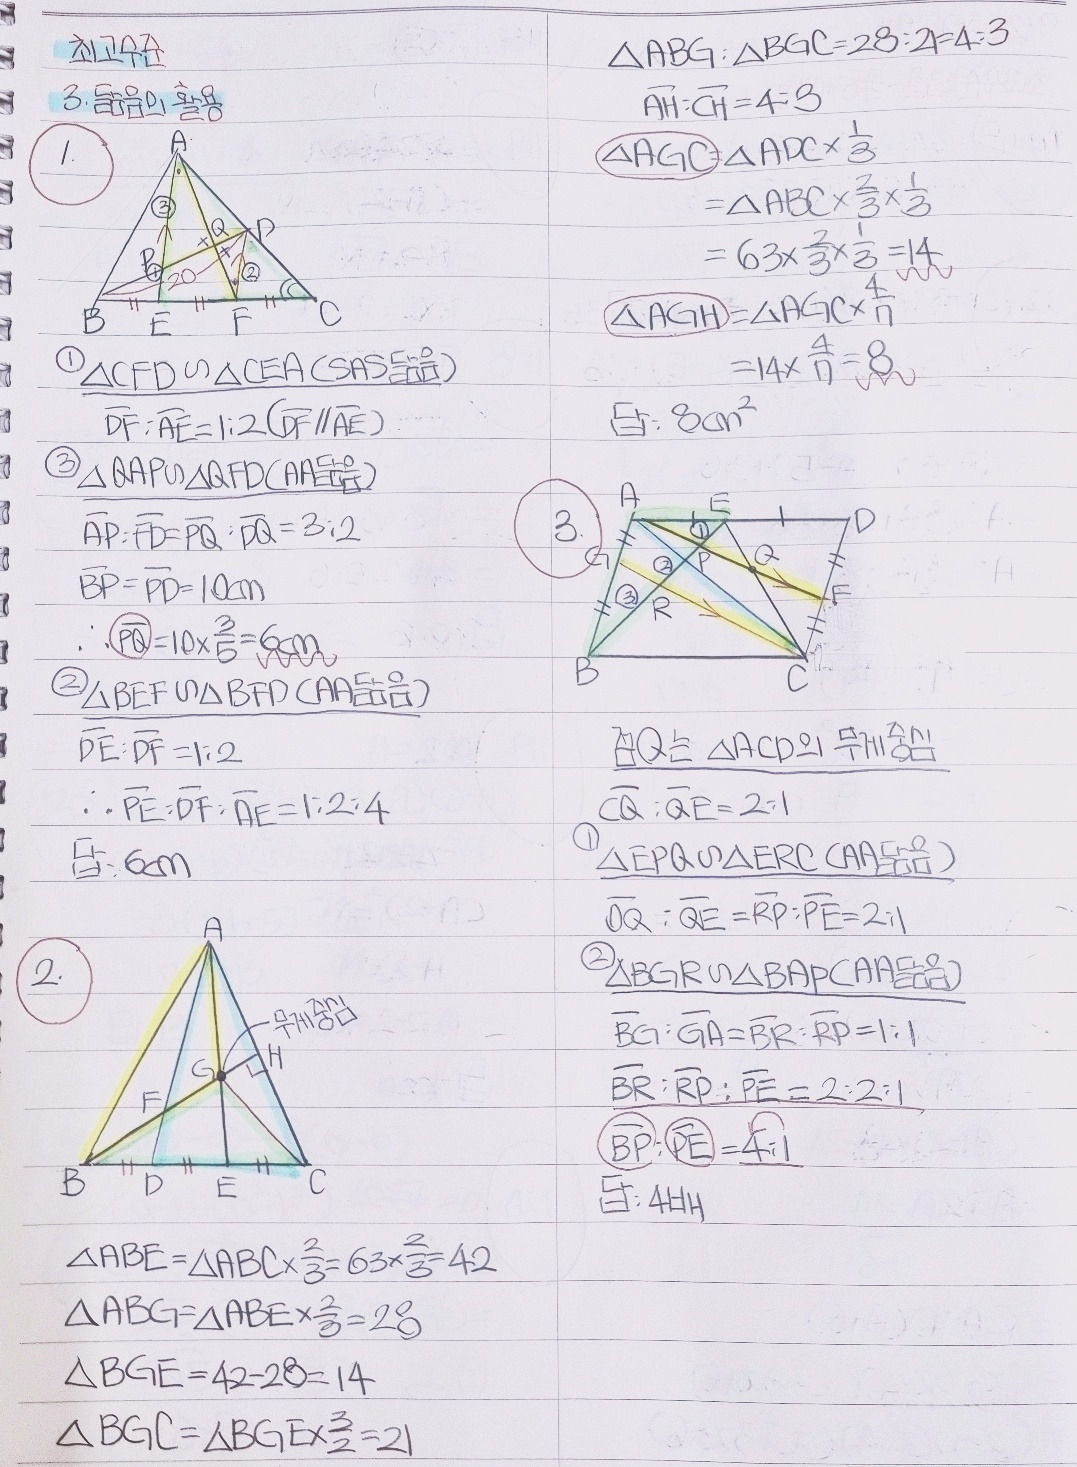 최고수준
3. 닮음의 활용
1.
A
③
Q
D
P
①
20
②
B E F C
① △CFD∽△CEA (SAS닮음)
DF:AE=1:2(DF//AE)
③ △QAP∽△QFD(AA닮음)
AP:FD=PQ:DQ=3:2
BP=PD=10cm
∴ PQ=10×3/5=6cm
② △BEF∽△BFD (AA닮음)
DE:DF=1:2
∴ PE:DF:AE=1:2:4
답:6cm
2.
A
무게중심
G H
F
B D E C
△ABE=△ABC×2/3=63×2/3=42
△ABG=△ABE×2/3=28
△BGE=42-28=14
△BGC=△BGE×3/2=21
△ABG:△BGC=28:21=4:3
AH:CH=4:3
△AGC=△ADC×1/3
=△ABC×2/3×1/3
=63×2/3×1/3=14
△AGH=△AGC×4/7
=14×4/7=8
답:8cm²
3.
A E D
①
G ② P Q
③ R F
B C
점Q는 △ACD의 무게중심
CQ:QE=2:1
① △EPQ∽△ERC (AA닮음)
QE=RP:PE=2:1
② △BGR∽△BAP(AA닮음)
BG:GA=BR:RP=1:1
BR:RP:PE=2:2:1
BP:PE=4:1
답:4배